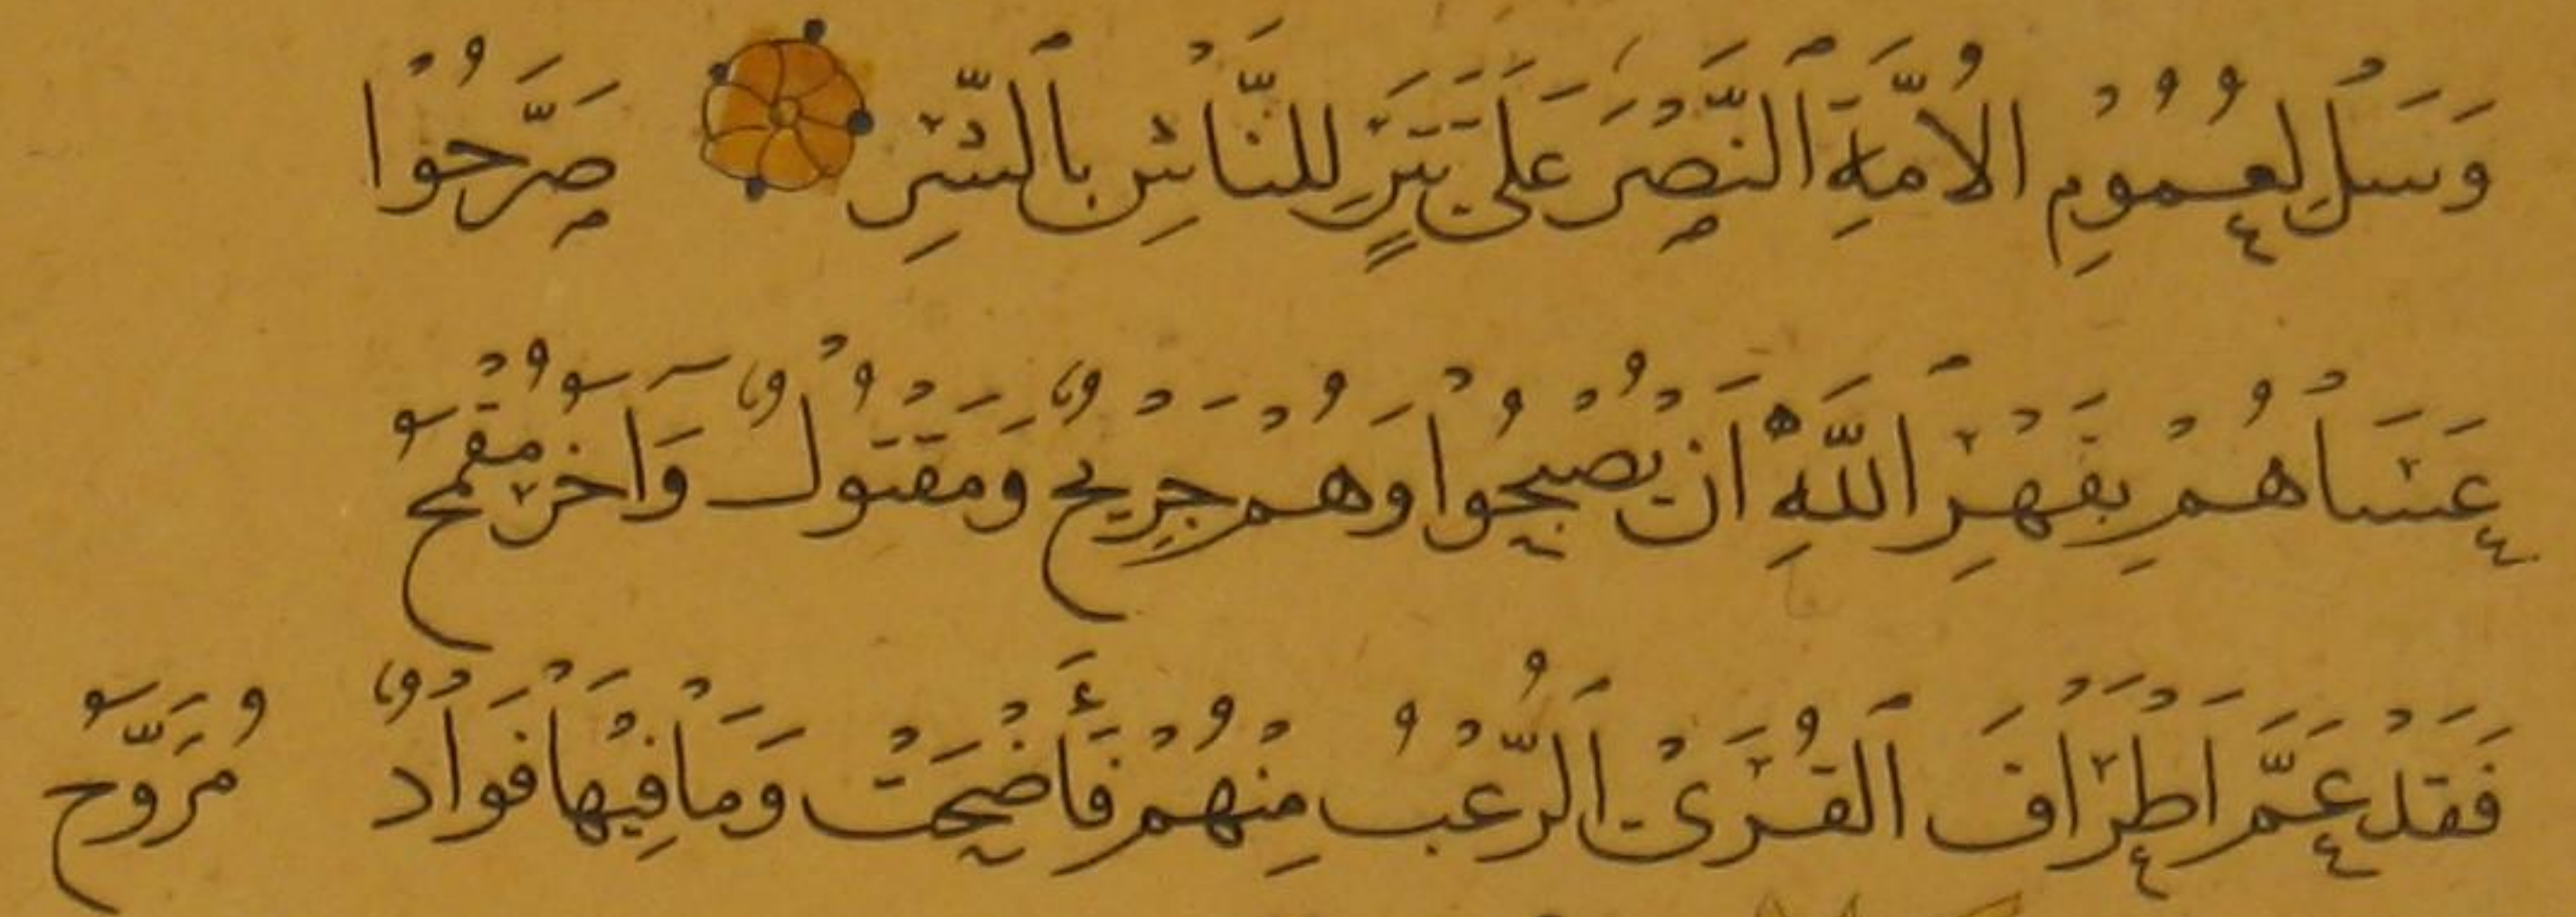 وَسَلْ لِعُمُوْمِ الْاُمَّةِ ٱلنَّصْرَ عَلٰی تَتَرٍ لِلنَّاسِ بِٱلسَّيْرِ صَرَّحُوْا
عَسَاهُمْ بِقَهْرِ ٱللّٰهِ اَنْ يُصْبِحُوْا وَهُمْ جَرِيْحٌ وَمَقْتُوْلٌ وَآخَرُ مُقْمَحُ
فَقَدْ عَمَّ اَطْرَافَ ٱلْقُرَىْ ٱلرُّعْبُ مِنْهُمْ فَأَضْحَتْ وَمَا فِيْهَا فُوَادٌ مُرَوَّحُ